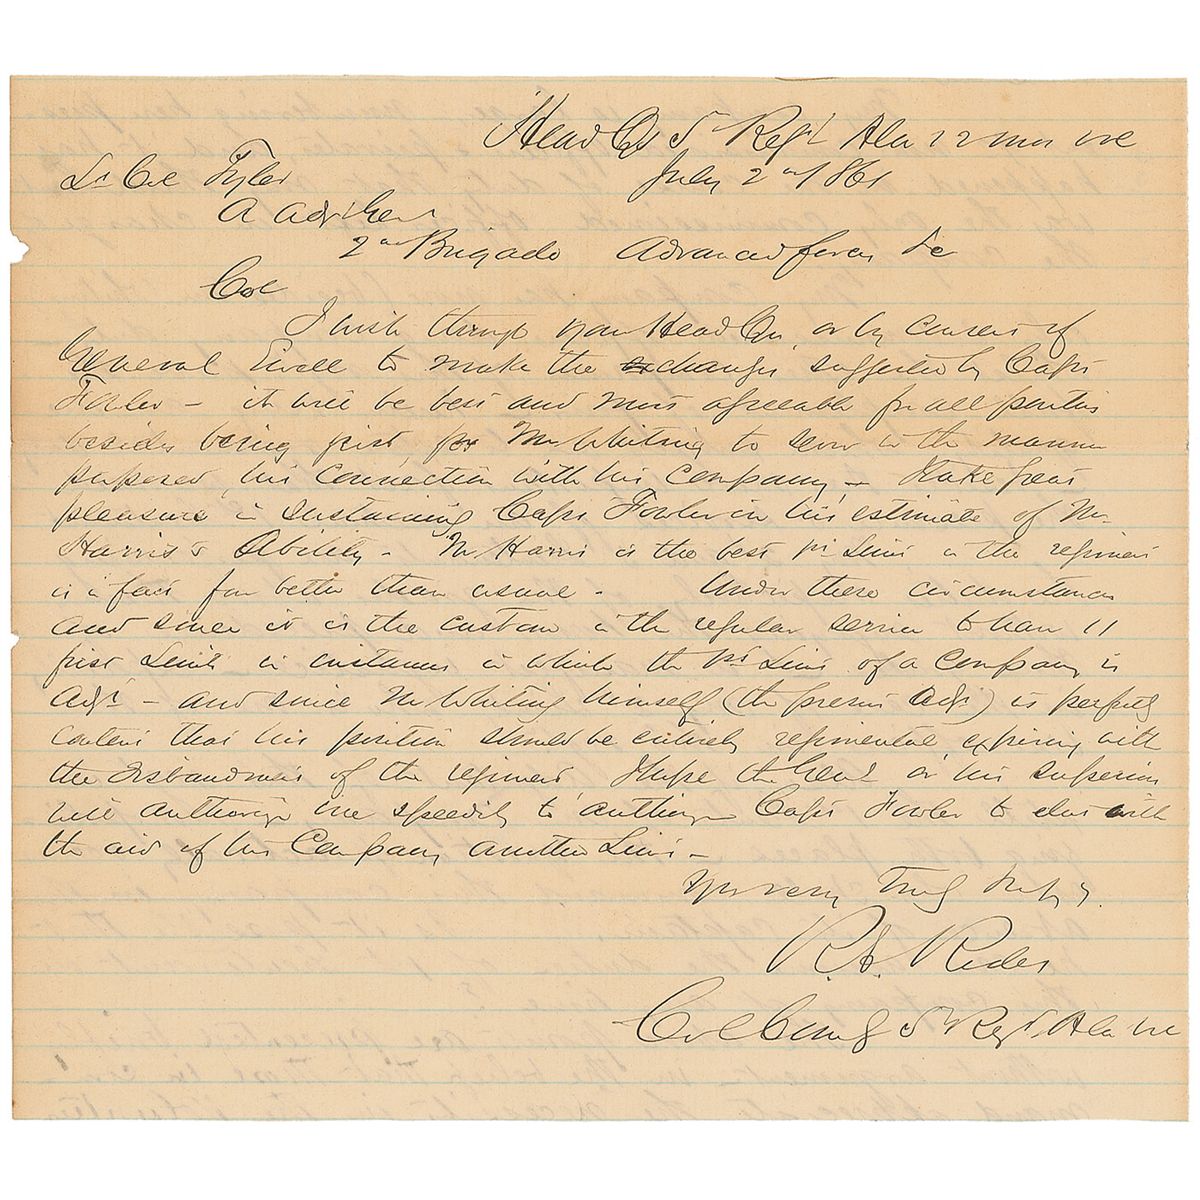 Head Qrs 5th Regt Ala 12 mos Vol
July 2nd 1861
Lt Col Tyler
A Adjt Genl
2nd Brigade Advanced forces &c
Col
I wish through your Head Qrs, or by consent of
General Ewell to make the changes suggested by Capt
Fowler – it will be best and most agreeable for all parties
besides being just, for Mr Whiting to serve in the manner
proposed, his connection with his company – I take great
pleasure in sustaining Capt Fowler in his estimate of Mr
Harris's Ability – Mr Harris is the best 1st Lieut in the regiment
is in fact far better than usual – Under these circumstances
and since it is the custom in the regular service to have 11
first Lieuts in instances in which the 1st Lieut of a company is
Adjt – and since Mr Whiting himself (the present Adjt) is perfectly
content that his position should be entirely regimental, expiring with
the disbandment of the regiment I hope the Genl or his superior
will authorize me speedily to authorize Capt Fowler to elect with
the aid of his Company another Lieut –
Yrs very Truly Resply.
R.E. Rodes
Col Comdg 5th Regt Ala Vol